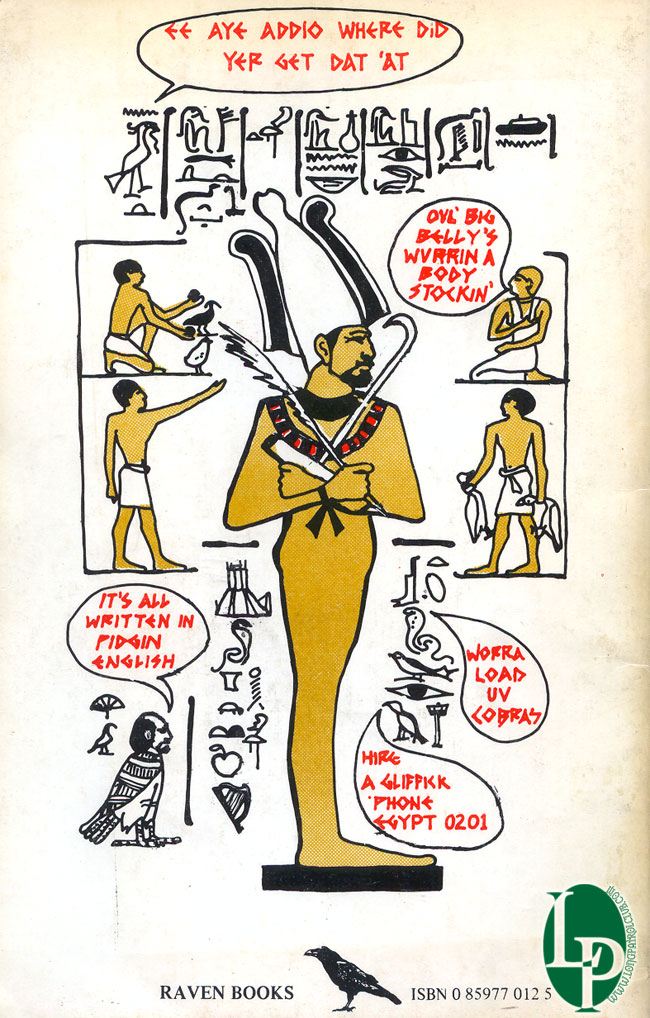 EE AYE ADDIO WHERE DID
YER GET DAT 'AT
OYL' BIG
BELLY'S
WURRIN A
BODY
STOCKIN'
IT'S ALL
WRITTEN IN
PIDGIN
ENGLISH
WORRA
LOAD
UV
COBRAS
HIRE
A GLIFFICK
'PHONE
EGYPT 0201
RAVEN BOOKS
ISBN 0 85977 012 5
LP